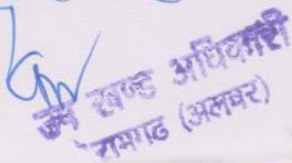 उप खण्ड अधिकारी
रामगढ (अलवर)